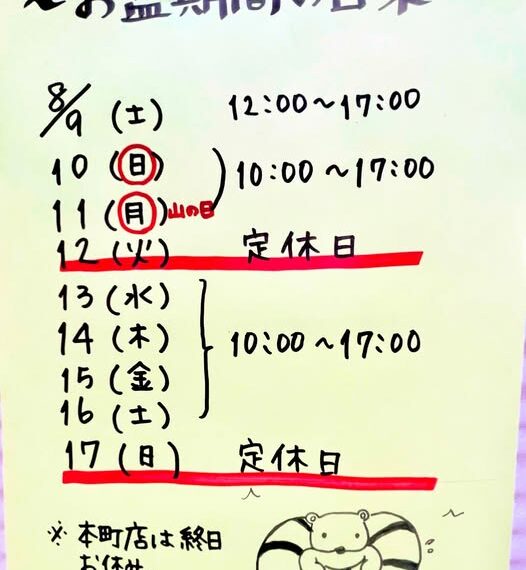 〜お盆期間の営業
8/9 (土) 12:00〜17:00
10 (日)
11 (月) 山の日
10:00〜17:00
12 (火) 定休日
13 (水)
14 (木)
15 (金)
16 (土)
10:00〜17:00
17 (日) 定休日
※ 本町店は終日
お休み